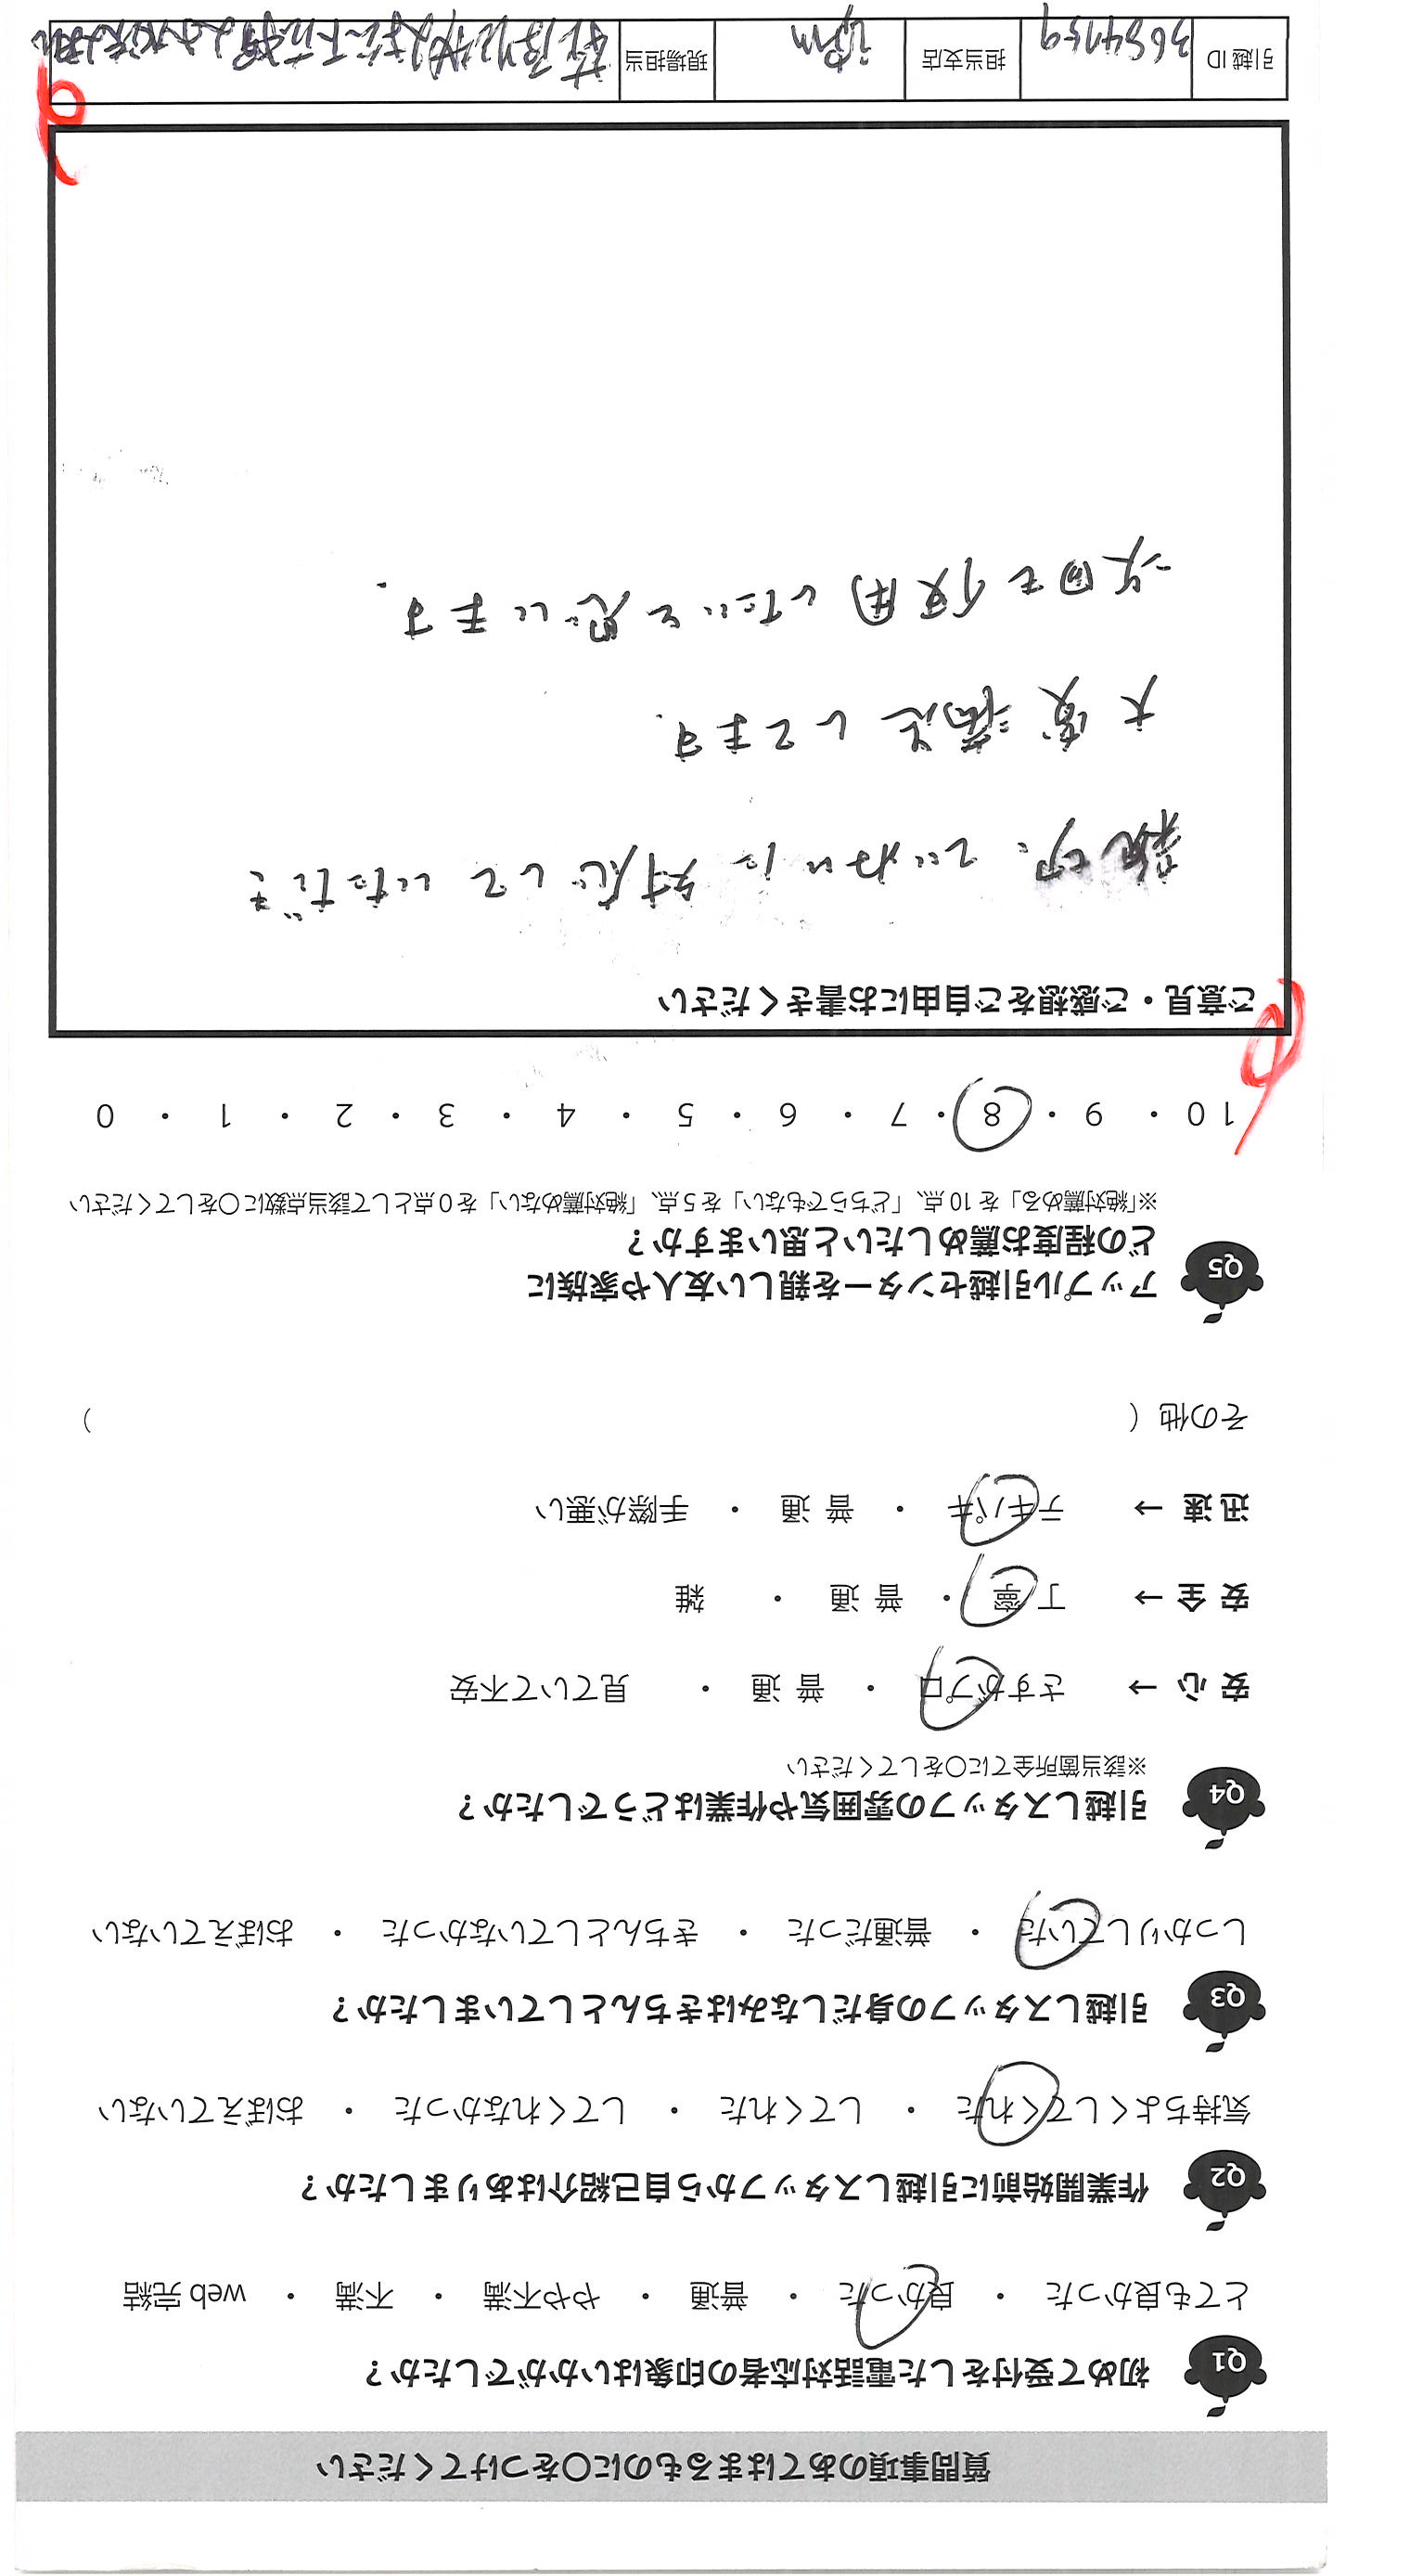 質問事項のあてはまるものに○をつけてください
Q1 初めて受付をした電話対応者の印象はいかがでしたか？
とても良かった ・ 良かった ・ 普通 ・ やや不満 ・ 不満 ・ web 完結
Q2 作業開始前に引越しスタッフから自己紹介はありましたか？
気持ちよくしてくれた ・ してくれた ・ してくれなかった ・ おぼえていない
Q3 引越しスタッフの身だしなみはきちんとしていましたか？
しっかりしていた ・ 普通だった ・ きちんとしていなかった ・ おぼえていない
Q4 引越しスタッフの雰囲気や作業はどうでしたか？
※該当箇所全てに○をしてください
安 心 → さすがプロ ・ 普 通 ・ 見ていて不安
安 全 → 丁 寧 ・ 普 通 ・ 雑
迅 速 → テキパキ ・ 普 通 ・ 手際が悪い
その他（ ）
Q5 アップル引越センターを親しい友人や家族に
どの程度お薦めしたいと思いますか？
※「絶対薦める」を 10 点、「どちらでもない」を 5 点、「絶対薦めない」を 0 点として該当点数に○をしてください
10 ・ 9 ・ 8 ・ 7 ・ 6 ・ 5 ・ 4 ・ 3 ・ 2 ・ 1 ・ 0
ご意見・ご感想をご自由にお書きください
親切、ていねいに対応していただき
大変満足してます.
次回も使用したいと思います.
引越 ID 3654759 担当支店 現場担当